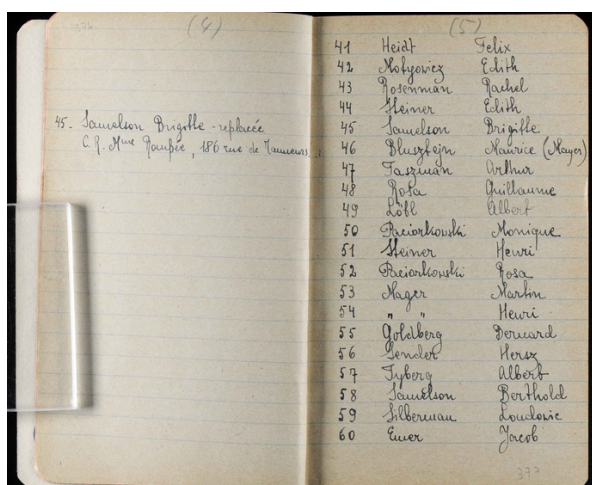 376
(4)
45. Samelson Brigitte - replacée
C.R. Mme Roupée, 186 rue de
(5)
41 Heidt Felix
42 Motyovicz Edith
43 Rosenman Rachel
44 Steiner Edith
45 Samelson Brigitte
46 Blusztejn Maurice (Mayer)
47 Faszman Arthur
48 Rosa Guillaume
49 Löbl Albert
50 Paciorkowski Monique
51 Steiner Henri
52 Paciorkowski Rosa
53 Nager Martin
54 " " Henri
55 Goldberg Bernard
56 Sender Hersz
57 Tyberg Albert
58 Samelson Berthold
59 Silberman Loudovic
60 Emer Jacob
377